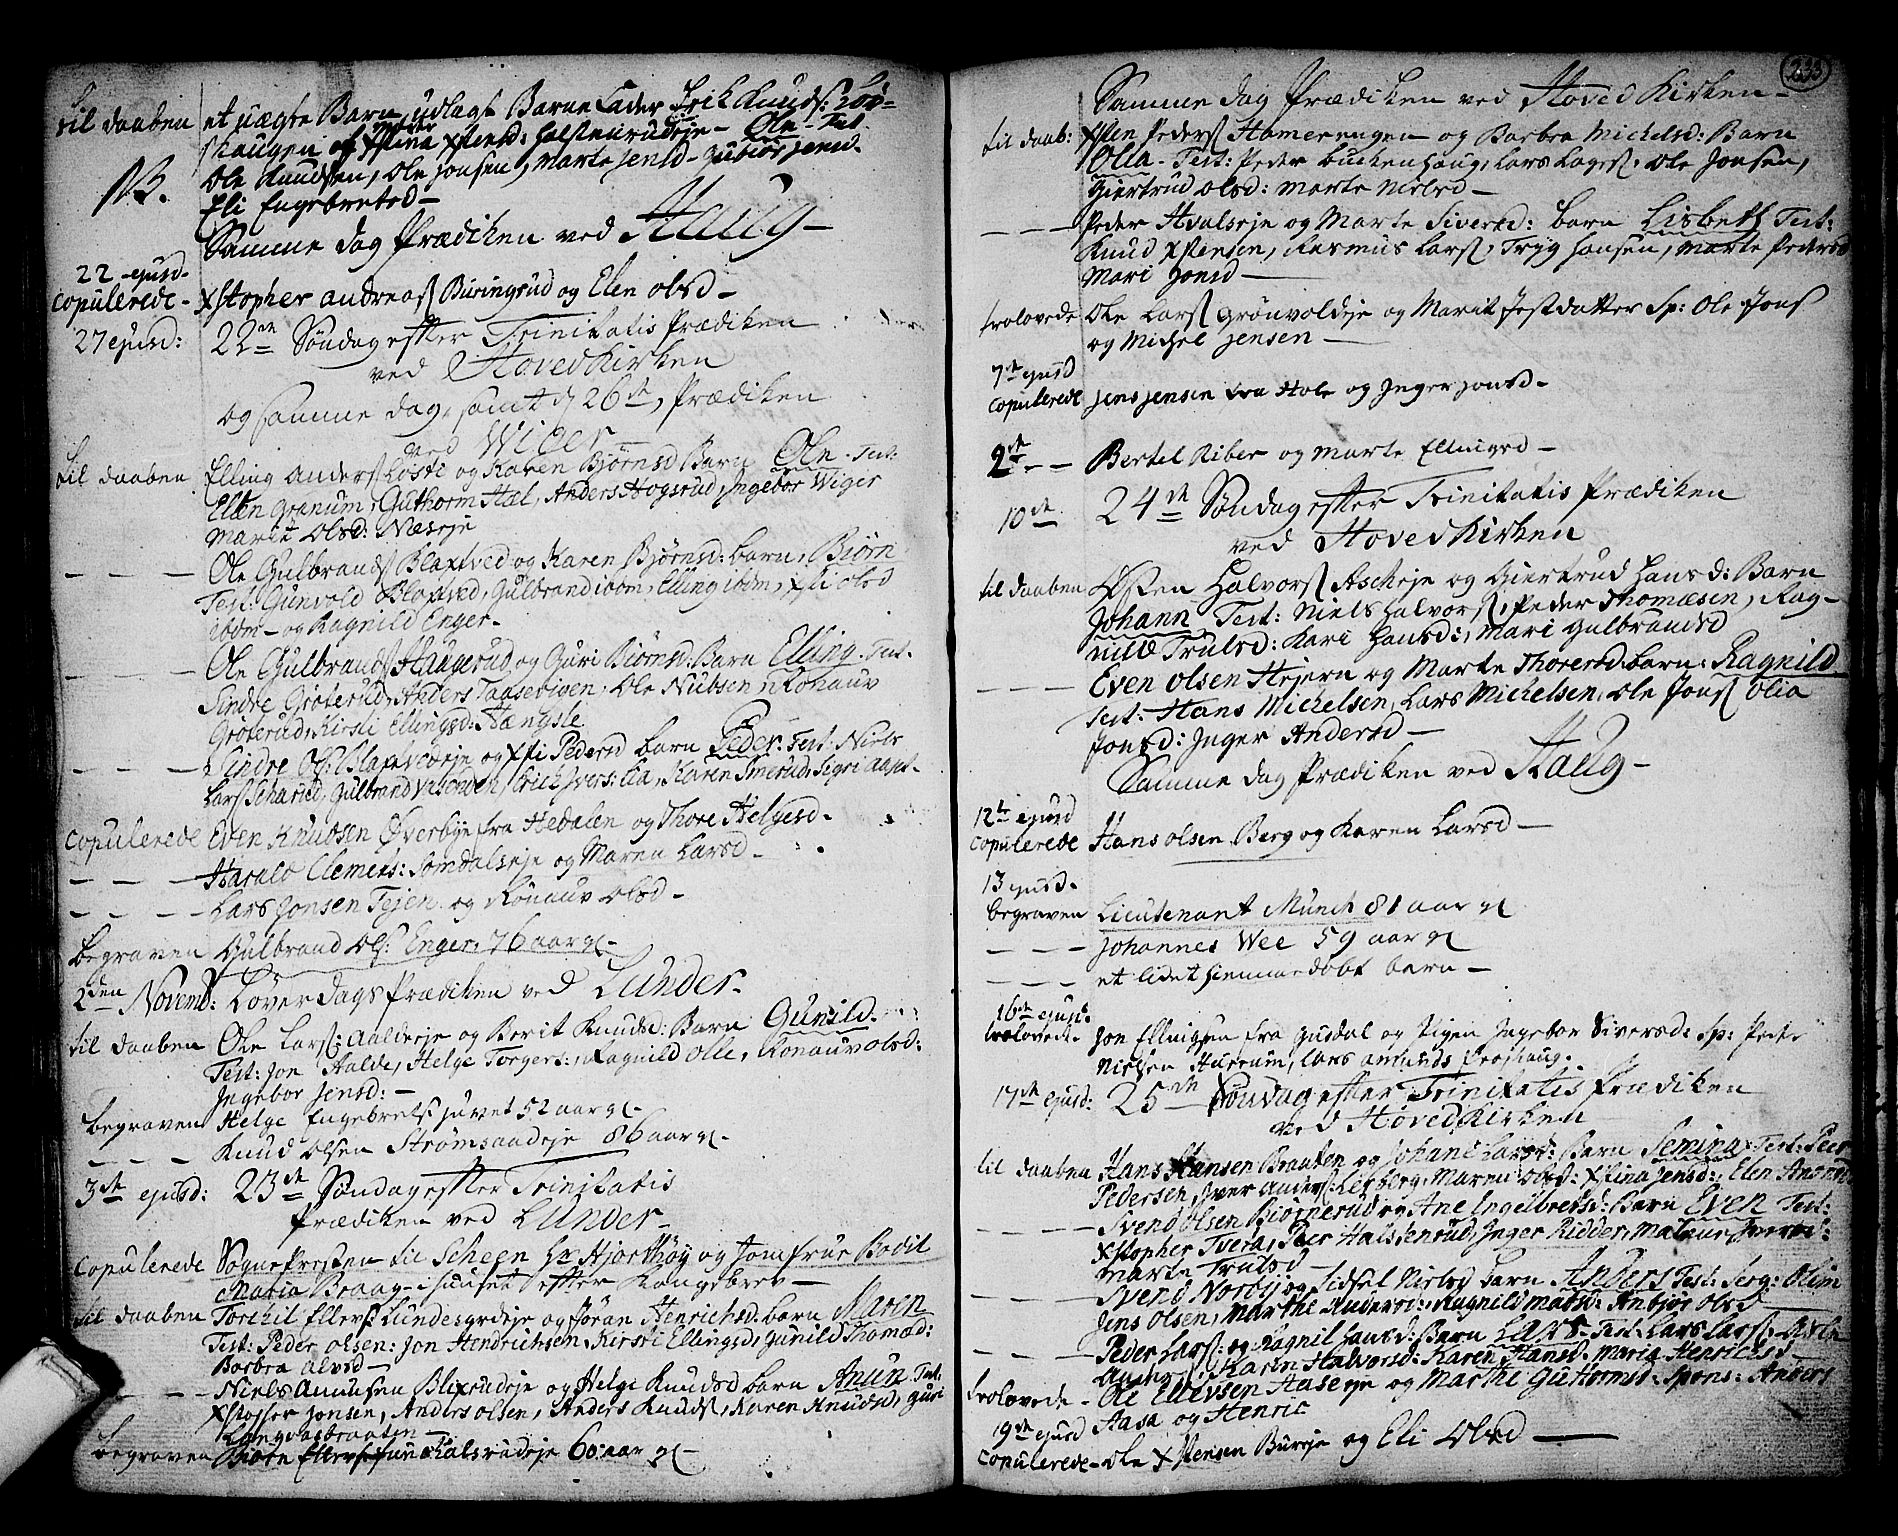 til daaben et uægte Barn udlagt Barne Fader Erik Knuds:
skaugen af Xstina Xstensd: Halstenrudeje - Ole - Test
NB. Ole Knudsen, Ole Jonsen, Marte Jensd - Gubiør Jensd.
Eli Engebretsd -
Samme dag Prædiken ved Haug -
22 ejusd.
copulerede - Xstopher Andreas Buringrud og Elen Olsd -
27 ejusd: 22de Søndag efter Trinitatis Prædiken
ved Hoved Kirken
og samme dag, samt d 26de, Prædiken
ved Wiger
til daaben Elling Anders Loste og Karen Bjørnsd Barn Ole - Test:
Ellen Granum, Guthorm Hæl, Anders Hogsrud, Ingebor Wiger
Marit Olsd: Næseje
- - - Ole Gulbrands Blaxtved og Karen Bjørnsd: barn, Biørn
Test: Gunvold Blaxtved, Gulbrand ibdm, Elling ibdm, Olsd
ibdm - og Ragnild Enger -
- - - Ole Gulbrands Haugerud og Guri Biørnsd: Barn Elling - Test.
Sindre Grøterud, Anders Taasevigen, Ole Nubsen, Ronauv
Grøterud, Kirsti Ellingsd: Hængsle
- - - Sindre Ols: Blaxtvedeje og Pedersd barn Peder - Test: Niels
Lars Scharud, Gulbrand Erich Ivers: Lia, Karen Smerud, Sigri
copulerede Even Knudsen Øverbye fra Hedalen og Thore Helgesd -
- - - Harald Clemets: Somdalseje og Maren Larsd -
- - - Lars Jonsen Tejen og Rønauv Olsd -
begraven Gulbrand Ols: Enger, 76 aar gl -
2den Novemb: Løverdags Prædiken ved Lunder -
til daaben Ole Lars: Aaldereje og Berit Knudsd: Barn Gunild.
Test: Jon Aalde, Helge Torgers:, Ragnild Olle, Ronauv Olsd:
Ingebor Jensd: -
begraven Helge Engebrets Juvet 52 aar gl -
- - - Knud Olsen Strømsaadeje 86 aar gl -
3de ejusd: 23de Søndag efter Trinitatis
Prædiken ved Lunder -
copulerede SognePresten til Scheen Hr Hjorthøy og Jomfrue Bodil
Maria Braag - i huuset efter Kongebrev -
til daaben Torchil Ellers Lundesgrdeje og Jøran Henrichsd. barn Maren
Test: Peder Olsen: Jon Hendrichsen, Kirsti Ellingsd, Gunild Thomæd:
Barbra Alvsd -
- - - Niels Amunsen Blixrudeje og Helge Knudsd barn Anun Test.
Xstoffer Jonsen, Anders Olsen, Anders Knuds, Karen Knudsd, Guri
Langvasbraaten -
begraven Biøte Ellers 60: aar gl -
233
Samme dag Prædiken ved Hoved Kirken -
til daab: Xsten Peders Hamerengen og Barbra Michelsd: Barn
Olia - Test: Peder Buckenhaug, Lars Lages, Ole Jonsen,
Giertrud Olsd: Marte Nielsd -
- - - Peder Hvalseje og Marte Siversd: barn Lisbeth Test:
Knud Xstensen, Rasmus Lars, Tryg Hansen, Marte Pedersd
Mari Jonsd -
trolovede Ole Lars Grønvoldeje og Marit Jestdatter Sp: Ole Jons
og Michel Jensen -
7de ejusd
copulerede Jens Jensen fra Hole og Inger Jonsd -
2de - - Bertel Riber og Marte Ellingsd -
10de 24de Søndag efter Trinitatis Prædiken
ved Hoved Kirken
til daaben Østen Halvors Ascheje og Giertrud Hansd: Barn
Johann Test: Niels Halvors, Peder Thomæsen, Rag-
nild Trulsd: Kari Hansd:, Mari Gulbrandsd
- - - Even Olsen Hejern og Marte Thoresd: barn: Ragnild
Test: Hans Michelsen, Lars Michelsen, Ole Jons Olia
Jonsd: Inger Andersd -
Samme dag Prædiken ved Haug -
12te ejusd
copulerede Hans Olsen Berg og Karen Larsd -
13 ejusd.
begraven Lieutenant Münch 81 aar gl
- - - Johannes Wee 59 aar gl
- - - et lidet hiemmedøbt barn -
16de ejusd:
trolovede. Jon Ellingsen fra Gusdal og Pigen Ingebor Siversd: Sp: Peder
Nielsen Hurrum, Lars Amunds
17de ejusd: 25de Søndag efter Trinitatis Prædiken
ved Hoved Kirken
til daaben Hans Hansen Braaten og Johane Larsd: Barn Semina Test: Peer
Pedersen, Iver Anders: Lerberg, Maren Olsd: Xstina Jensd:, Elen Anders
- - - Svend Olsen Biørnerud og Ane Ingelbretsd: Barn Even Test:
Xstopher Tvera, Peer Halstenrud, Inger Ridder,
Marte Trulsd -
- - - Svend Norby og Sidsel Nielsd barn Anders Test: Serg: Olsen
Jens Olsen, Marthe Andersd:, Ragnild Matsd: Anbjør Olsd
- - - Peder Lars: og Ragnil Hansd: Barn Lars - Test: Lars Lars,
Anders, Karen Halvorsd: Karen Hansd. Maria Henricsd -
trolovede - Ole Ellevsen Aaseeje og Marthe Guthormsd - Spons: Anders
Aasa og Henric
19de ejusd
copulerede - Ole Xstensen Bureje og Eli Olsd -